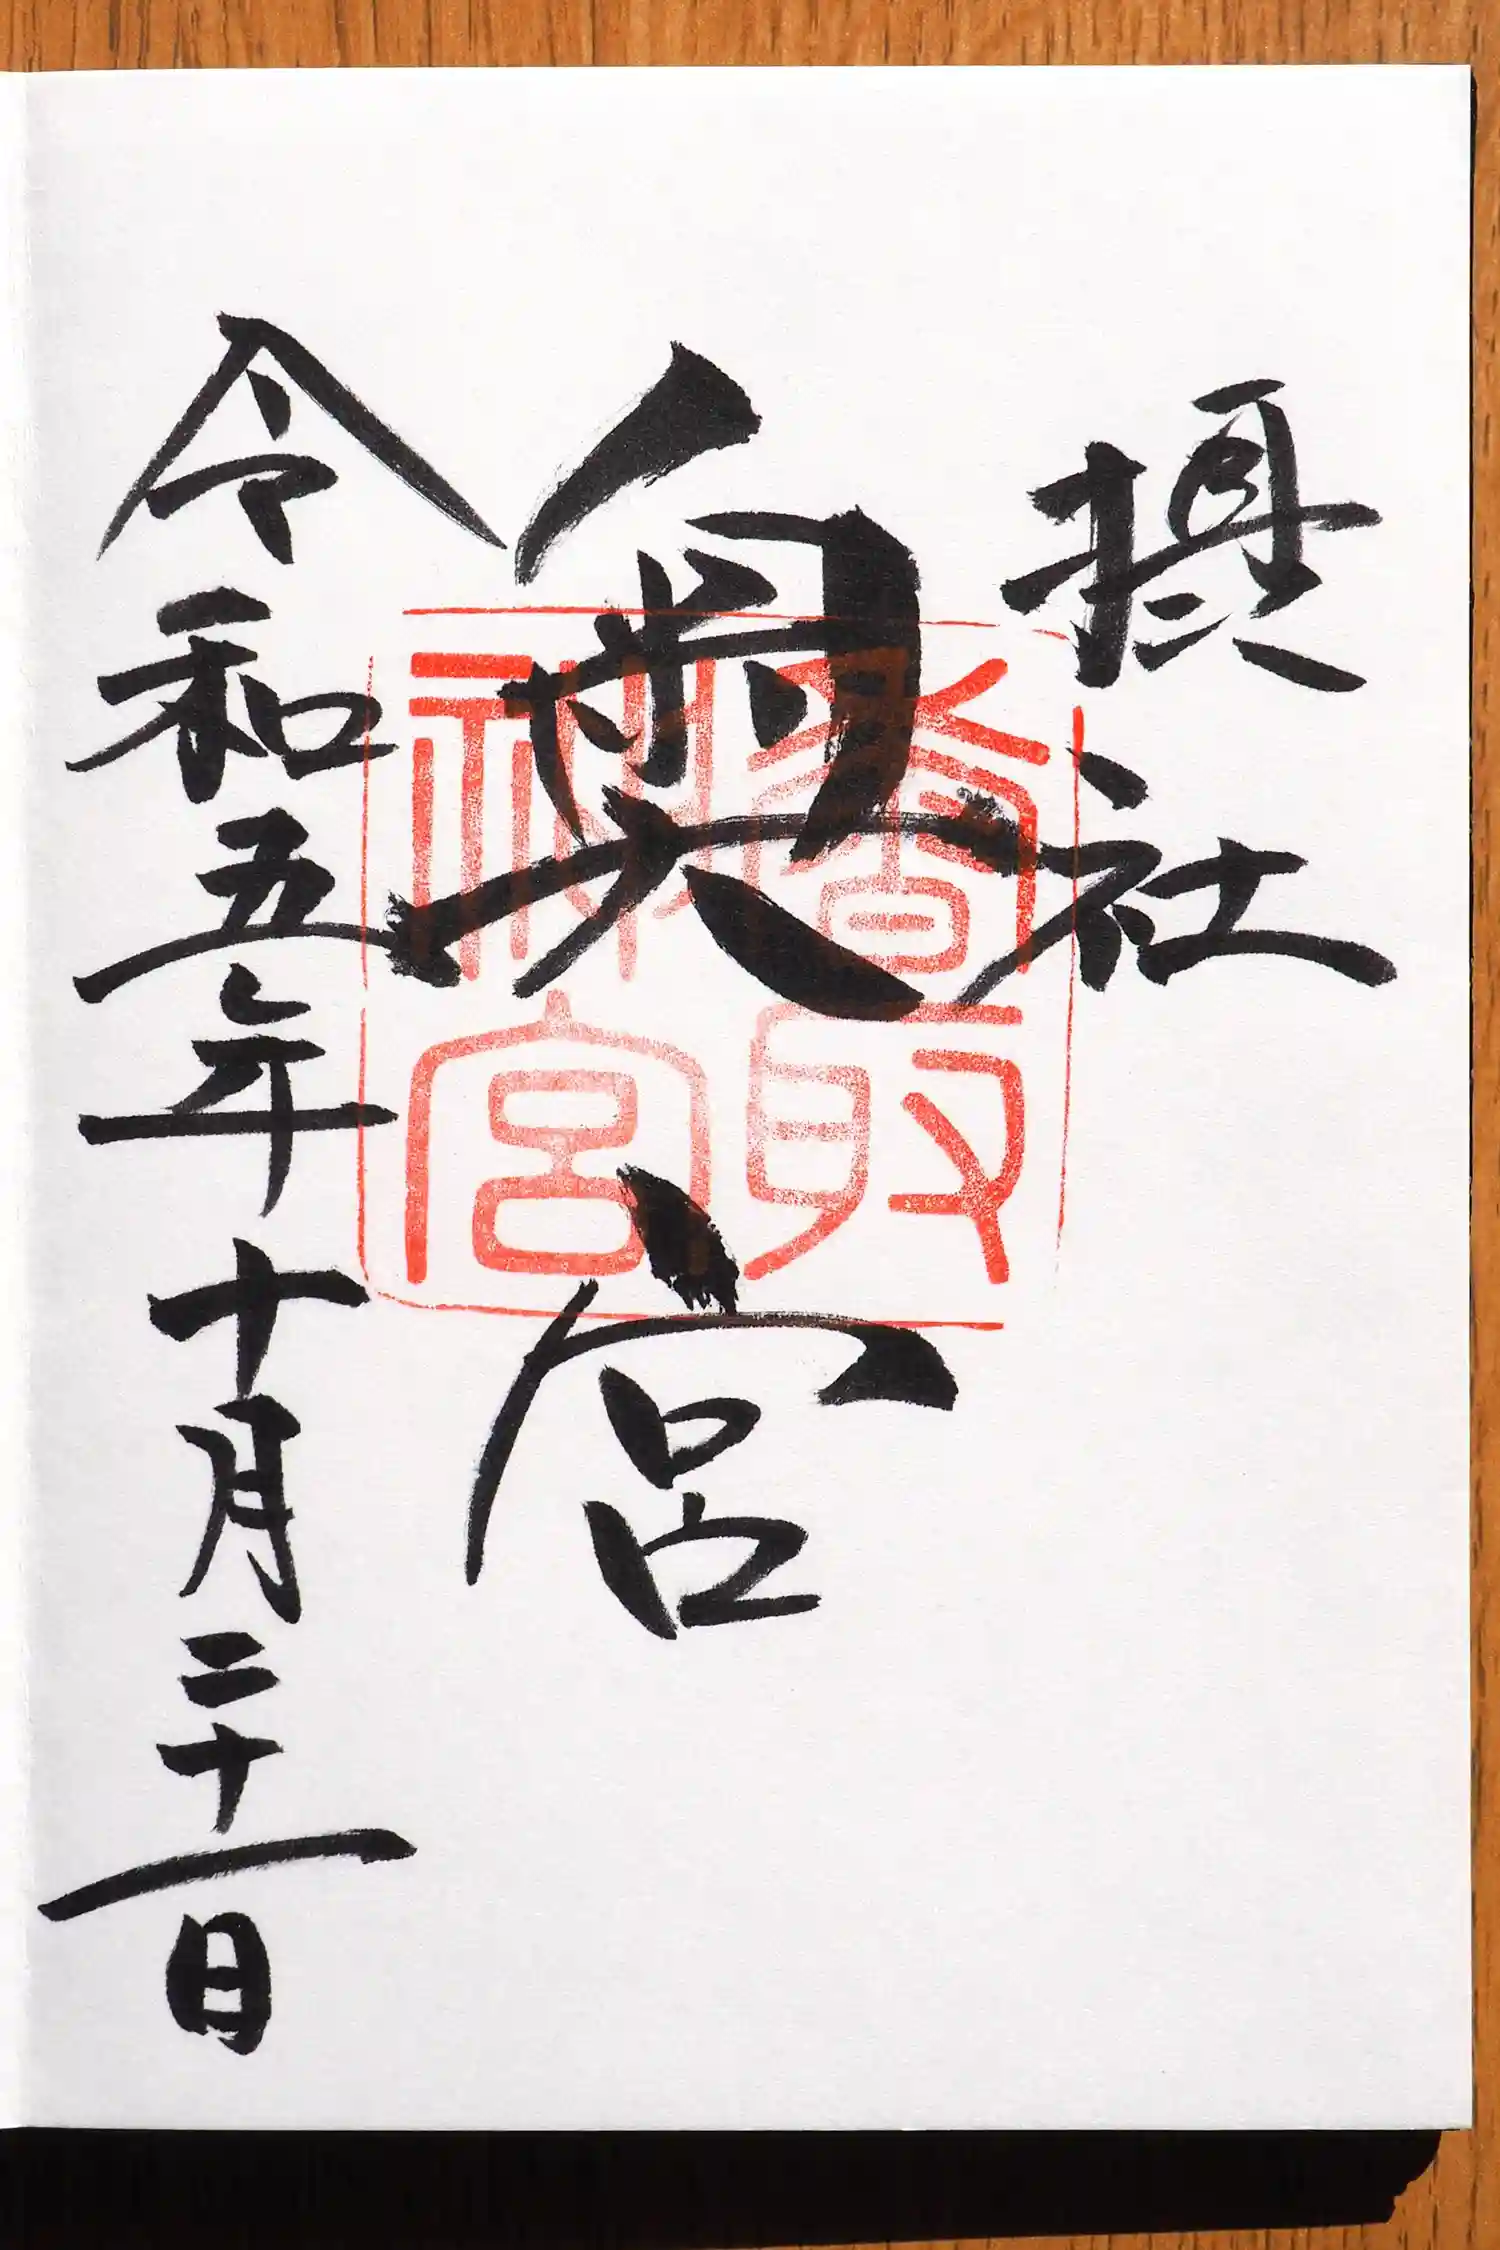 摂社
奥宮
香取
神宮
令和五年十月二十一日